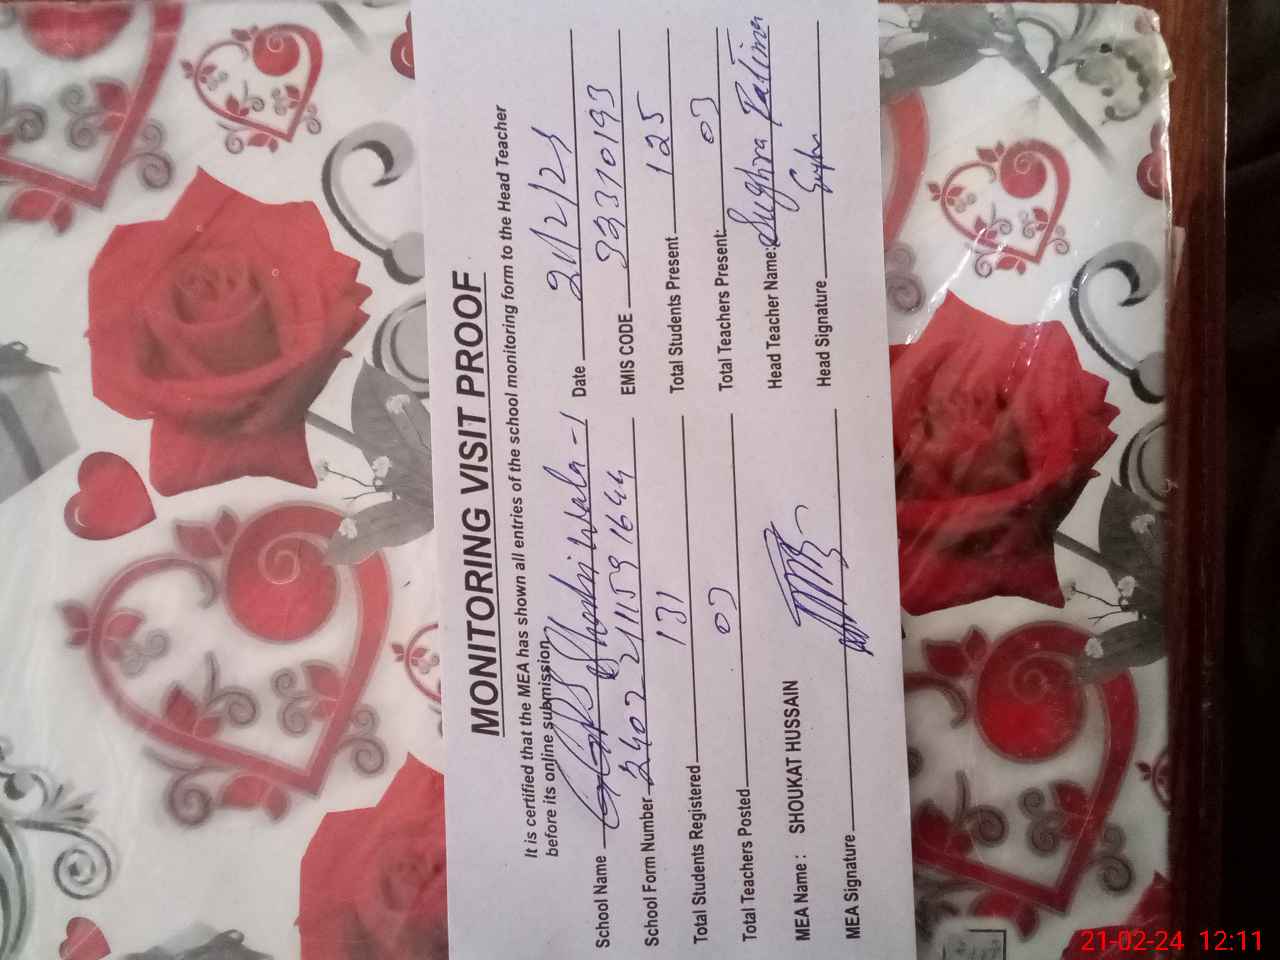 MONITORING VISIT PROOF
It is certified that the MEA has shown all entries of the school monitoring form to the Head Teacher
before its online submission.
School Name GGPS Wala-1 Date 21/2/24
School Form Number 2402-211591644 EMIS CODE 32310193
Total Students Registered 131 Total Students Present 125
Total Teachers Posted 03 Total Teachers Present: 03
MEA Name : SHOUKAT HUSSAIN Head Teacher Name: Sughra Fatima
MEA Signature Head Signature
21-02-24 12:11